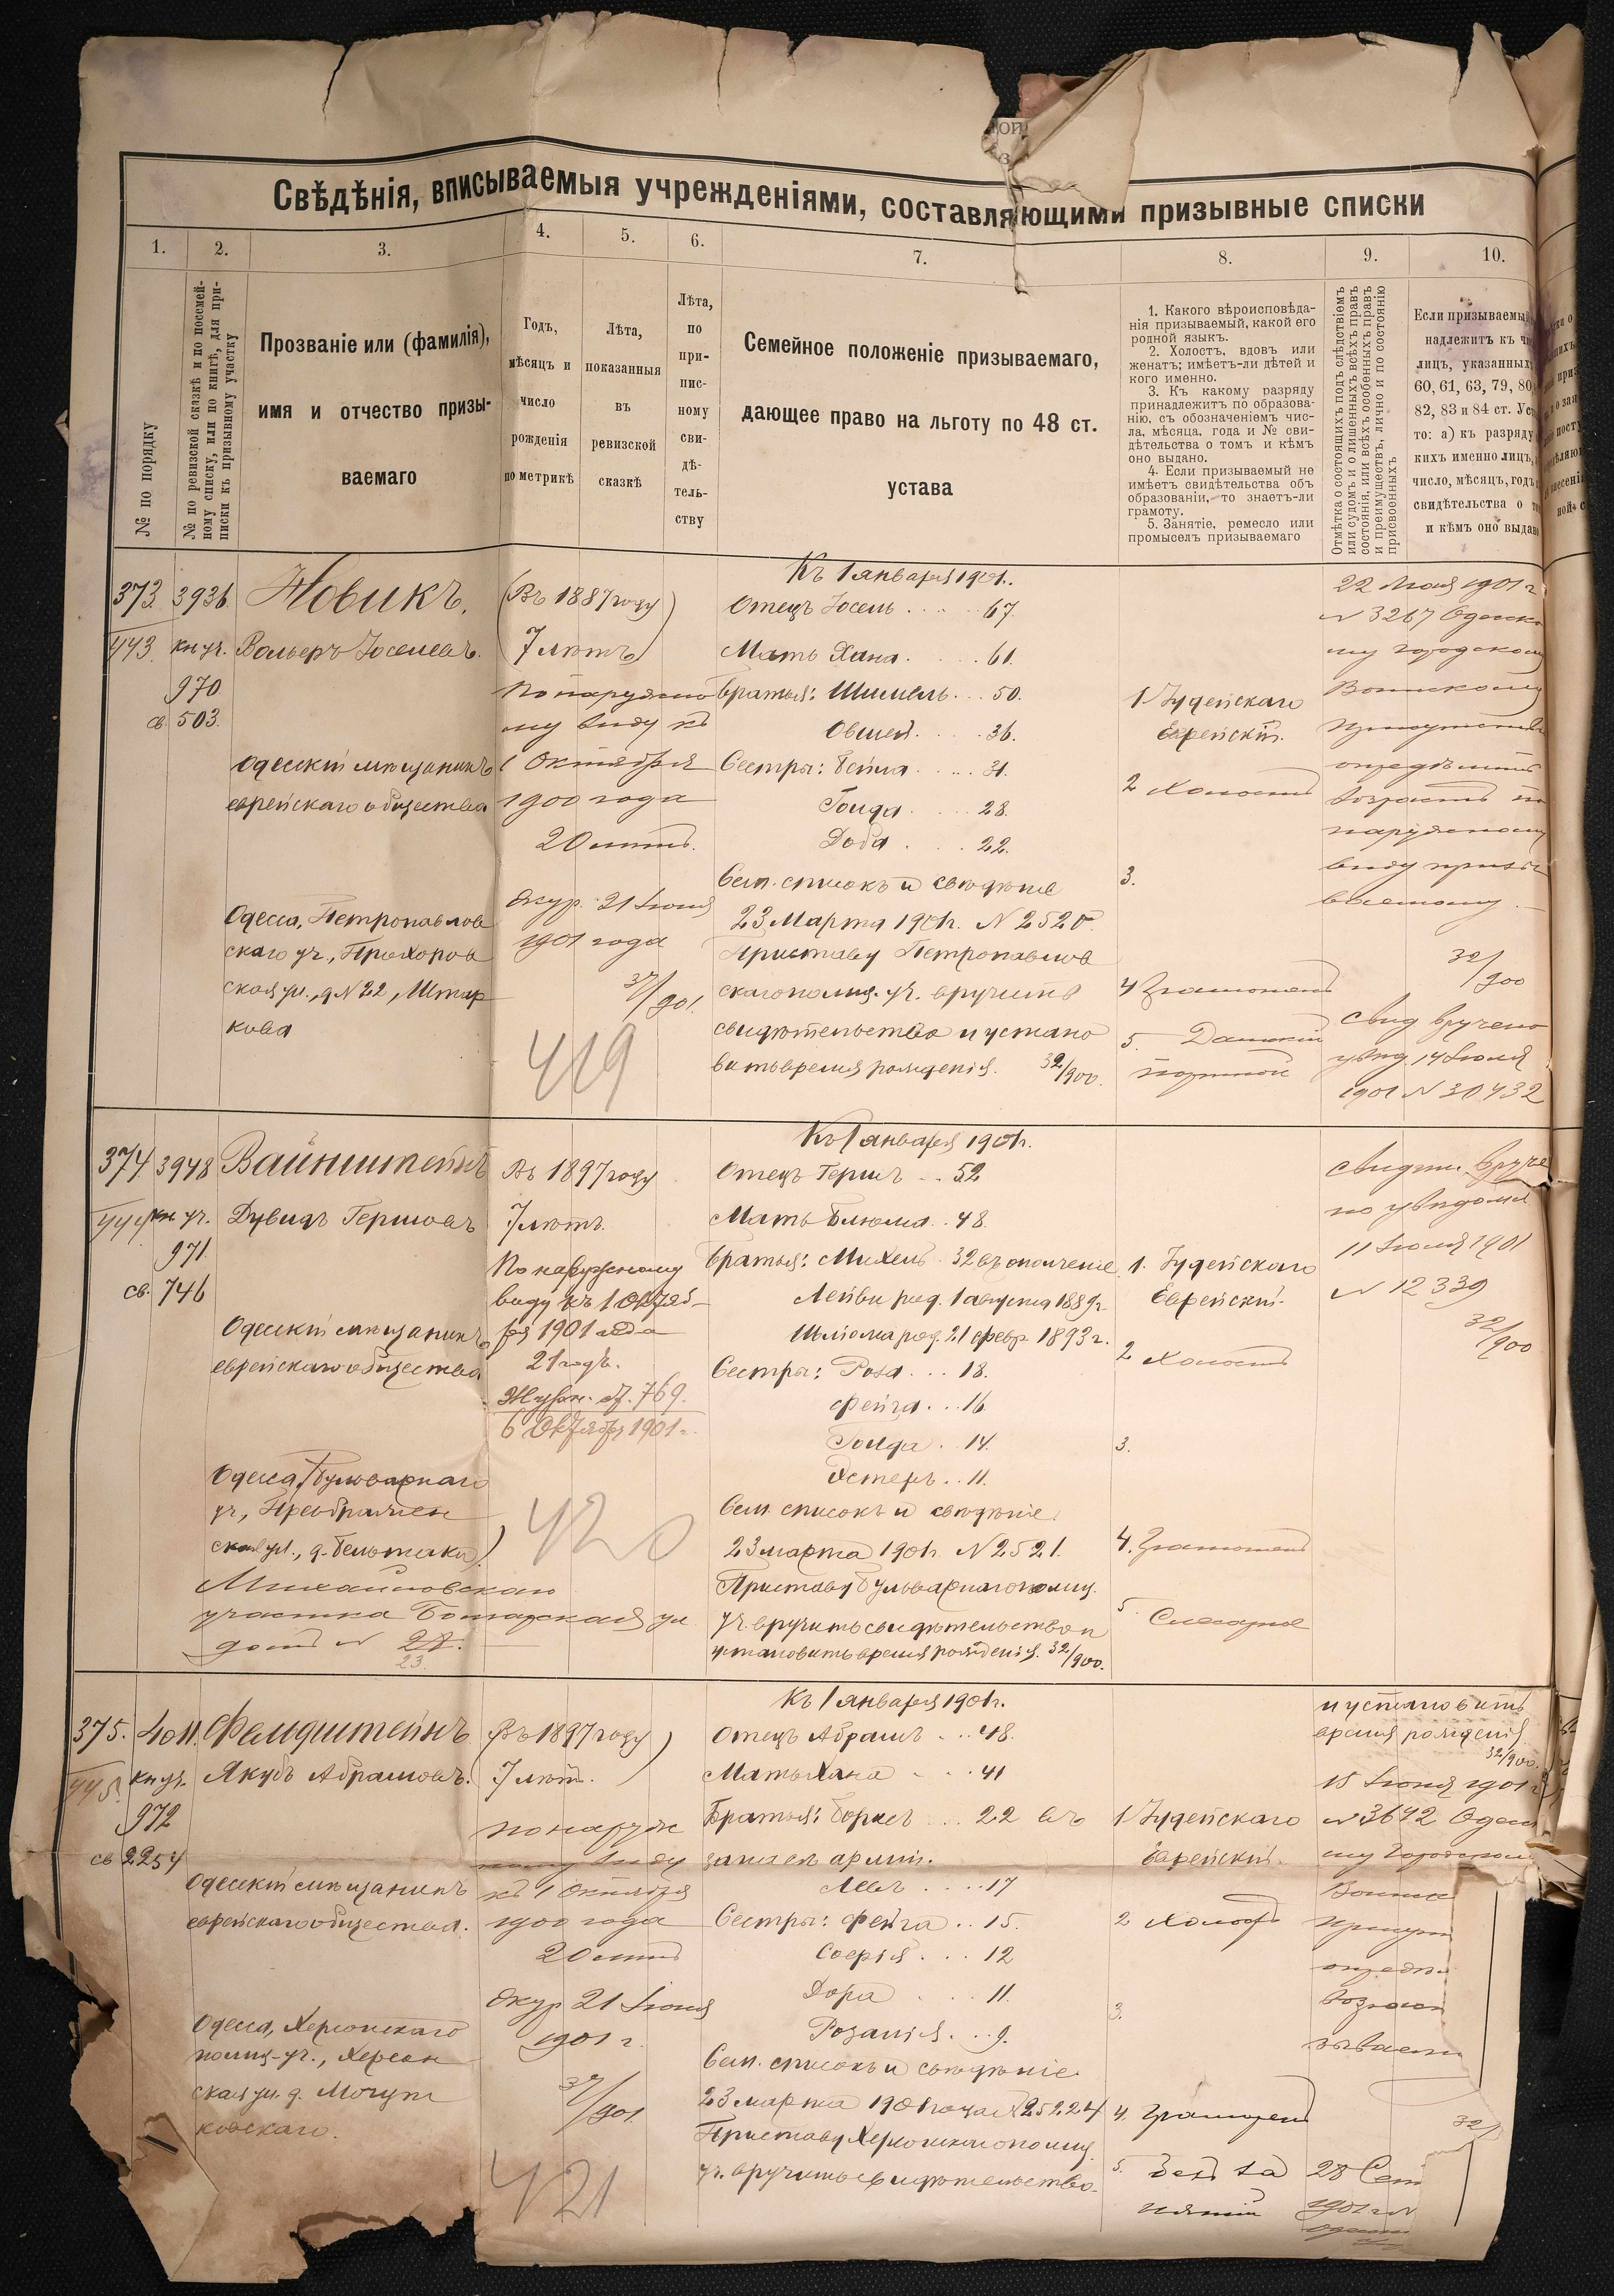 Свѣдѣнія, вписываемыя учрежденіями, составляющими призывные списки
1. 2. 3. 4. 5. 6. 7. 8. 9. 10.
№ по порядку
№ по ревизской сказкѣ и по посемей-
ному списку, или по книгѣ, для при-
писки къ призывному участку
Прозваніе или (фамилія),
имя и отчество призы-
ваемаго
Годъ,
мѣсяцъ и
число
рожденія
по метрикѣ
Лѣта,
показанныя
въ
ревизской
сказкѣ
Лѣта,
по
при-
пис-
ному
сви-
дѣ-
тель-
ству
Семейное положеніе призываемаго,
дающее право на льготу по 48 ст.
устава
1. Какого вѣроисповѣда-
нія призываемый, какой его
родной языкъ.
2. Холостъ, вдовъ или
женатъ; имѣетъ-ли дѣтей и
кого именно.
3. Къ какому разряду
принадлежитъ по образова-
нію, съ обозначеніемъ чис-
ла, мѣсяца, года и № сви-
дѣтельства о томъ и кѣмъ
оно выдано.
4. Если призываемый не
имѣетъ свидѣтельства объ
образованіи, то знаетъ-ли
грамоту.
5. Занятіе, ремесло или
промыселъ призываемаго
Отмѣтка о состоящихъ подъ слѣдствіемъ
или судомъ и о лишенныхъ всѣхъ правъ
состоянія, или всѣхъ особенныхъ правъ
и преимуществъ, лично и по состоянію
присвоенныхъ
Если призываемый
надлежитъ къ
лицъ, указанныхъ
60, 61, 63, 79, 80,
82, 83 и 84 ст. Уст
то: а) къ разряду
кихъ именно лицъ,
число, мѣсяцъ, годъ
свидѣтельства о
и кѣмъ оно выдано
373. 3936
443. кн уч.
970
св. 503.
Новикъ.
Вольфъ Іоселевъ.
Одесскій мѣщанинъ
еврейскаго общества
Одесса, Петропавлов
скаго уч., Прохоров
ская ул., д № 22, Штар
кова
(Въ 1887 году)
7 лѣтъ
По наружно
му виду къ
1 Октября
1900 года
20 лѣтъ.
Жур. 21 Іюня
1901 года
37/901.
419
Къ 1 января 1901г.
Отецъ Іосель . . . . 67.
Мать Хана . . . . 61.
Братья: Шимель . . 50.
Овшей . . . . 36.
Сестры: Бейла . . . . 31.
Голда . . . . 28.
Доба . . . . 22.
Сем. списокъ и свѣдѣніе
23 Марта 1901г. № 2520.
Приставу Петропавлов
скаго полиц. уч. вручить
свидѣтельство и устано
вить время рожденія. 32/900.
1 Іудейскаго
Еврейскій.
2 Холостъ
3.
4 Грамотенъ
5. Дамскій
портной
22 Мая 1901 г
№ 3267 Одесско
му городскому
Воинскому
Присутствію
опредѣлить
возрастъ по
наружному
виду призы
ваемому.
32/900
свид вручено
увѣд. 14 Іюля
1901 № 30432
374 3948
444 кн уч.
971.
св. 746
Вайнштейнъ
Дувидъ Гершовъ
Одесскій мѣщанинъ
еврейскаго общества
Одесса, Бульварнаго
уч., Преображен
Михайловскаго
участка Болгарская ул
домъ №
23.
Въ 1897 году
7 лѣтъ.
По наружному
виду къ 1 Октяб-
ря 1901 года
21 годъ.
Журн. ст. 769.
6 Октября 1901 г.
420
Къ 1 января 1901г.
Отецъ Гершъ . . 52
Мать Блюма . . 48.
Братья: Михель . 32 въ ополченіе
Лейви род. 1 августа 1889г.
Шліома род. 21 февр. 1893 г.
Сестры: Роза . . . 18.
Фейга . . . 16
Голда . . 14.
Эстеръ . . 11.
Сем. списокъ и свѣдѣніе
23 марта 1901г. № 2521.
Приставу Бульварнаго полиц.
уч. вручить свидѣтельство и
установить время рожденія. 32/900.
1. Іудейскаго
Еврейскій.
2 Холостъ
3.
4. Грамотенъ
5. Слесарное
свидѣт. вруче
но увѣдомл
11 Іюля 1901
№ 12339
32/900
375. 4011.
445. кн уч.
972
св 2254
Фельдштейнъ
Якубъ Абрамовъ.
Одесскій мѣщанинъ
еврейскаго общества.
Одесса, Херсонскаго
полиц. уч., Херсон
ская ул. д. Могун
ковскаго.
Въ 1897 году
7 лѣтъ.
по наруж
ному виду
къ 1 Октября
1900 года
20 лѣтъ
Жур 21 Іюня
1901 г.
37/901.
421
Къ 1 января 1901г.
Отецъ Абрамъ . . . 48.
Мать Хана . . . . 41
Братья: Борисъ . . . 22 въ
запасѣ арміи.
Левъ . . . . 17
Сестры: Фейга . . 15.
Софія . . . 12
Дора . . . . 11.
Розалія . . . 9.
Сем. списокъ и свѣдѣніе
23 марта 1901 года № 25224
Приставу Херсонскаго полиц
уч. вручить свидѣтельство
1 Іудейскаго
Еврейскій.
2 Холостъ
3.
4. Грамотенъ
5. Безъ за
нятій
и установить
время рожденія.
32/900.
15 Іюня 1901 г
№ 3642 Одесско
му Городскому
Воинс
Присут
опредѣл
возраст
зываем
28 Сен
1901 г №